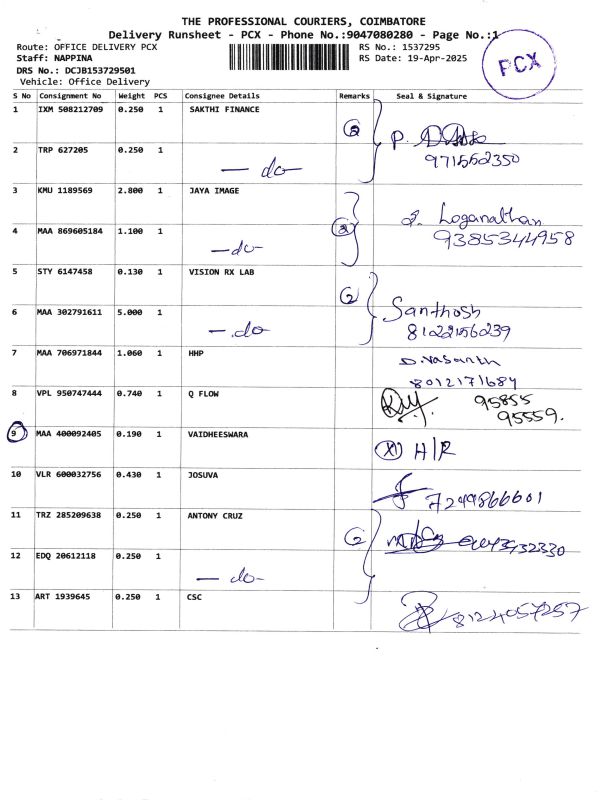 THE PROFESSIONAL COURIERS, COIMBATORE
Delivery Runsheet - PCX - Phone No.:9047080280 - Page No.:1
Route: OFFICE DELIVERY PCX
RS No.: 1537295
Staff: NAPPINA
RS Date: 19-Apr-2025
DRS No.: DCJB153729501
Vehicle: Office Delivery
PCX
S No Consignment No Weight PCS Consignee Details Remarks Seal & Signature
1 IXM 508212709 0.250 1 SAKTHI FINANCE
② P.
9715562350
2 TRP 627205 0.250 1 — do —
3 KMU 1189569 2.800 1 JAYA IMAGE
② Loganathan
9385344958
4 MAA 869605184 1.100 1 — do —
5 STY 6147458 0.130 1 VISION RX LAB
② Santhosh
8122156239
6 MAA 302791611 5.000 1 — do —
7 MAA 706971844 1.060 1 HHP D. Vasanth
8012171684
8 VPL 950747444 0.740 1 Q FLOW 95855
95559.
9 MAA 400092405 0.190 1 VAIDHEESWARA (X) H/R
10 VLR 600032756 0.430 1 JOSUVA 7299866601
11 TRZ 285209638 0.250 1 ANTONY CRUZ
②
12 EDQ 20612118 0.250 1 — do —
13 ART 1939645 0.250 1 CSC 8124057257